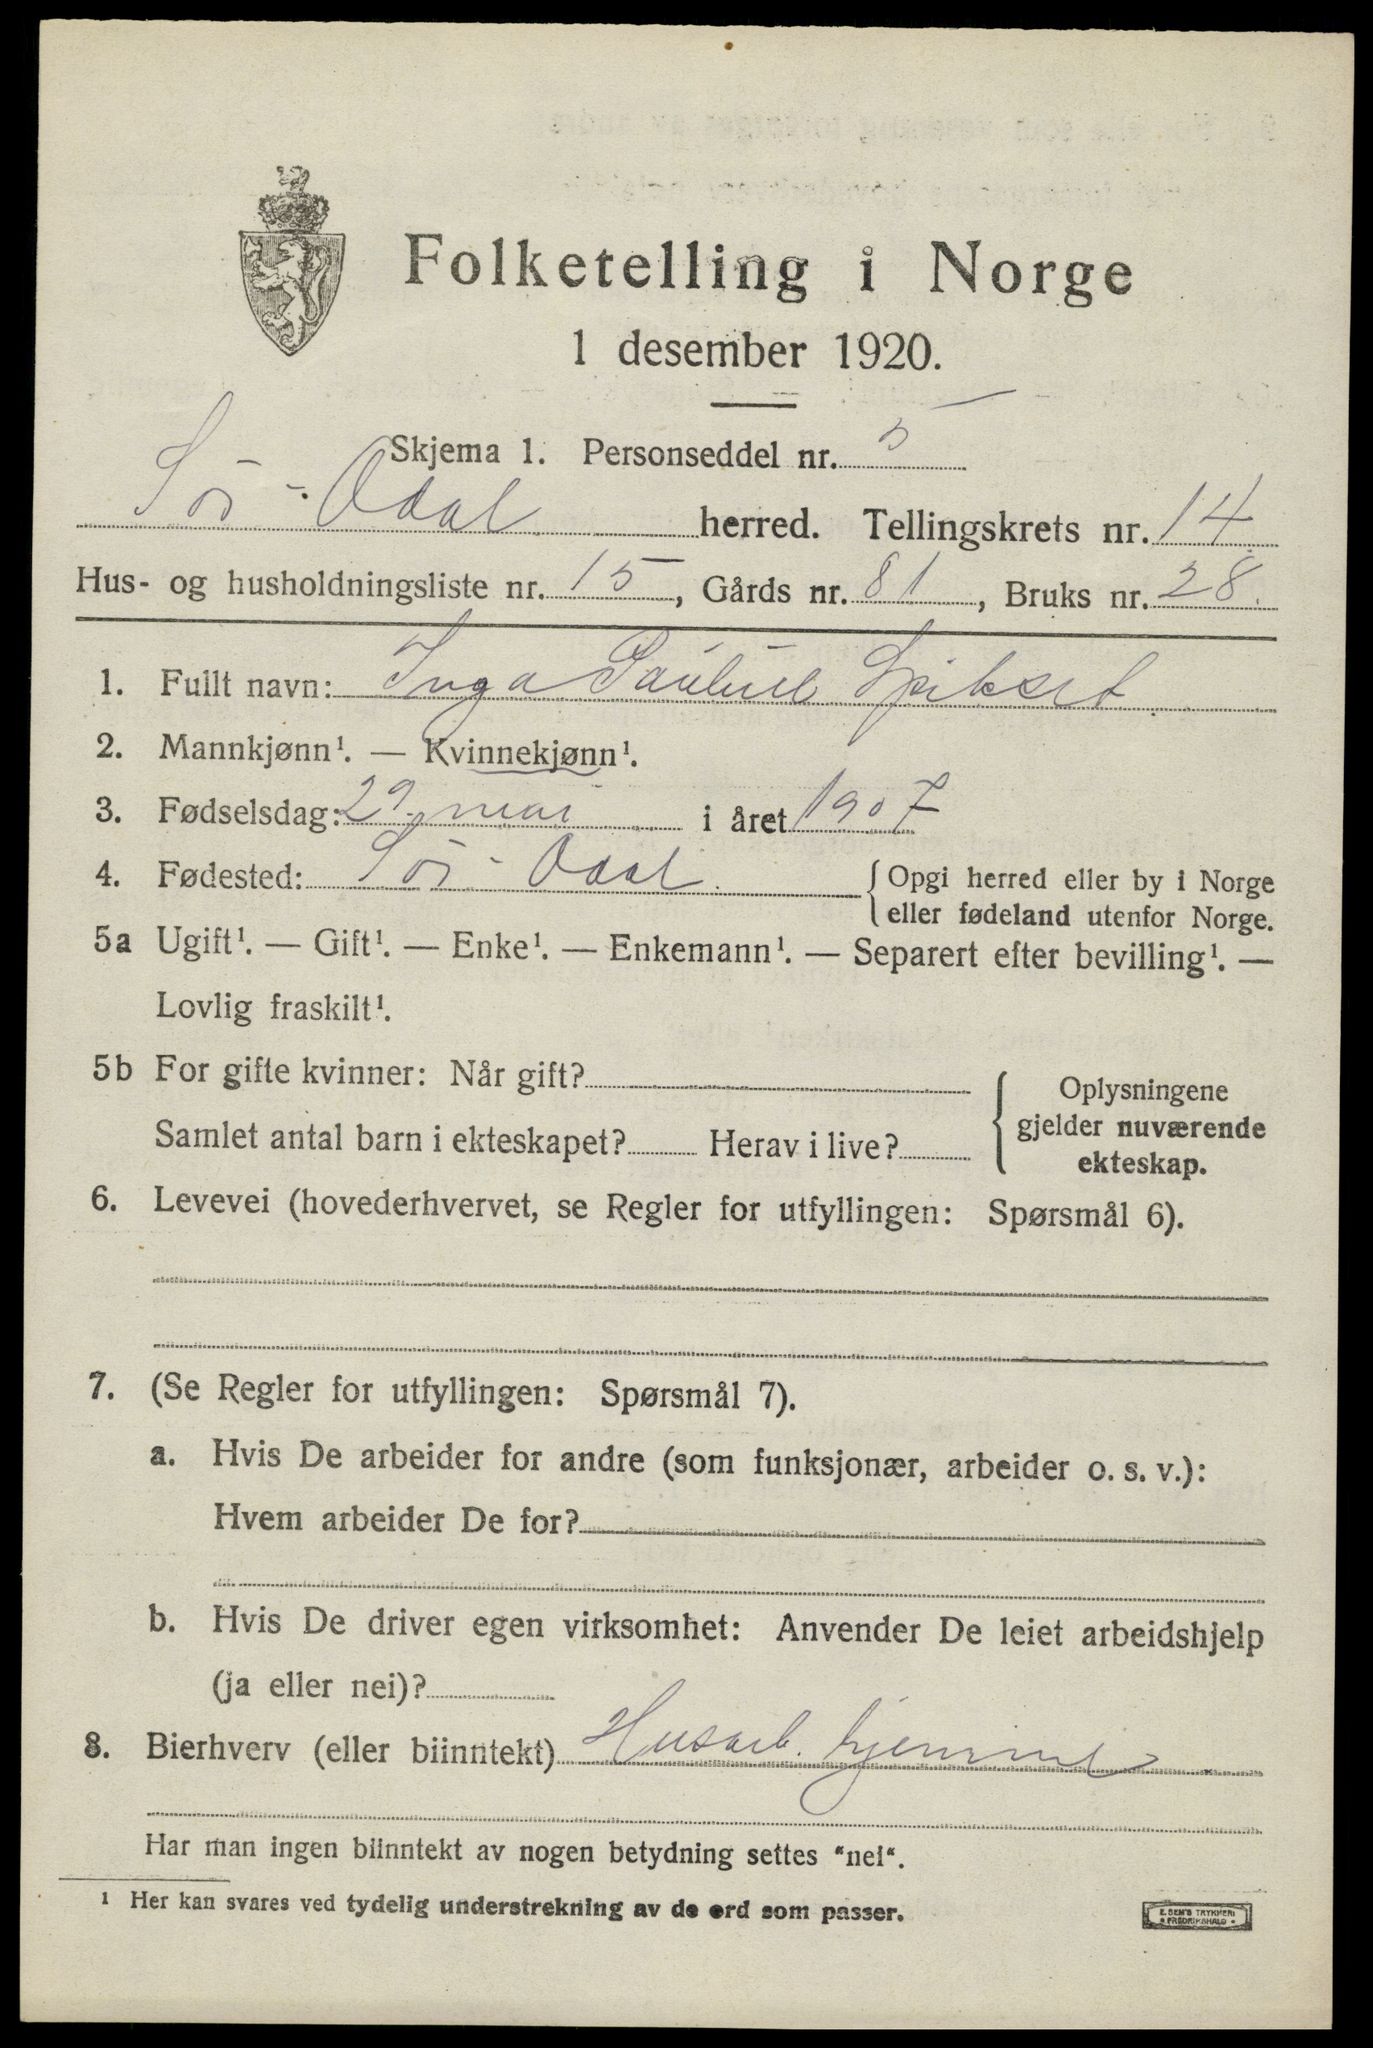 Folketelling i Norge
1 desember 1920.
Skjema 1. Personseddel nr. 5
Sør-Odal herred. Tellingskrets nr. 14
Hus- og husholdningsliste nr. 15, Gårds nr. 81, Bruks nr. 28.
1. Fullt navn: Inga Pauline Spikset
2. Mannkjønn¹. — Kvinnekjønn¹.
3. Fødselsdag: 29. mai i året 1907
4. Fødested: Sør-Odal. Opgi herred eller by i Norge
eller fødeland utenfor Norge.
5a Ugift¹. — Gift¹. — Enke¹. — Enkemann¹. — Separert efter bevilling¹. —
Lovlig fraskilt¹.
5b For gifte kvinner: Når gift?
Samlet antal barn i ekteskapet? Herav i live?
Oplysningene
gjelder nuværende
ekteskap.
6. Levevei (hovederhvervet, se Regler for utfyllingen: Spørsmål 6).
7. (Se Regler for utfyllingen: Spørsmål 7).
a. Hvis De arbeider for andre (som funksjonær, arbeider o. s. v.):
Hvem arbeider De for?
b. Hvis De driver egen virksomhet: Anvender De leiet arbeidshjelp
(ja eller nei)?
8. Bierhverv (eller biinntekt) Husarb. hjemme.
Har man ingen biinntekt av nogen betydning settes "nei".
¹ Her kan svares ved tydelig understrekning av de ord som passer.
E. SEM'S TRYKKERI
FREDRIKSHALD